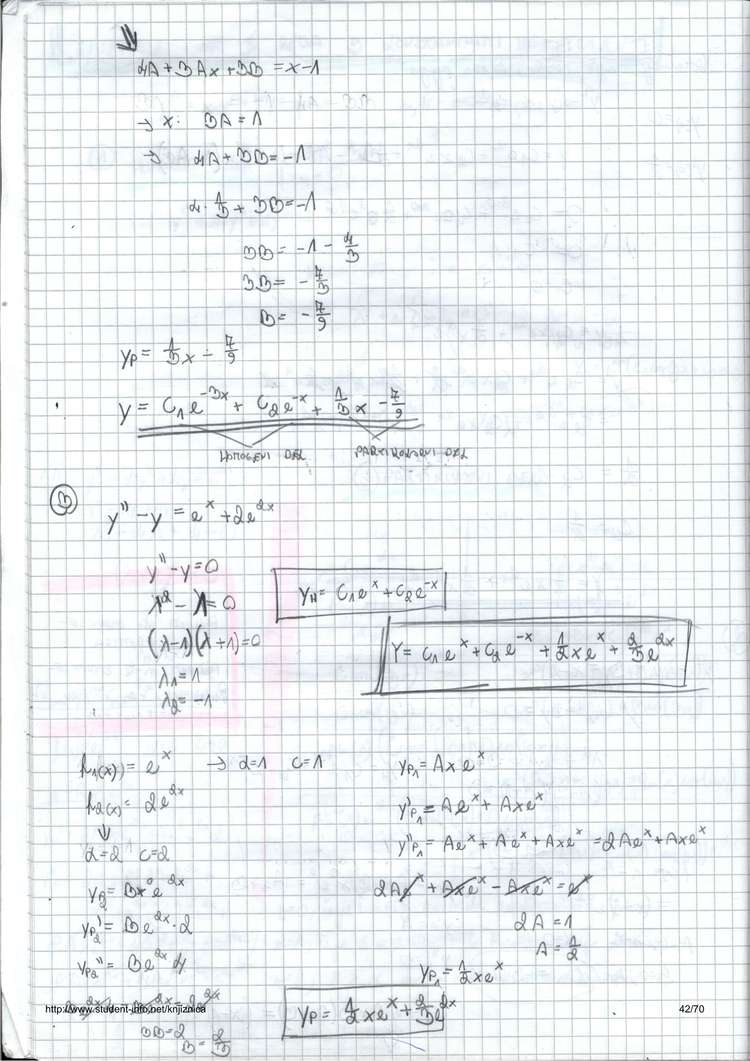 ⇓
4A + 3Ax + 3B = x - 1
→ x: 3A = 1
→ 4A + 3B = -1
4 · 1/3 + 3B = -1
3B = -1 - 4/3
3B = - 7/3
B = - 7/9
yp = 1/3 x - 7/9
y = C1 e^-3x + C2 e^-x + 1/3 x - 7/9
HOMOGENI DEL
PARTIKULARNI DEL
3
y'' - y = e^x + 2e^2x
y'' - y = 0
yH = C1 e^x + C2 e^-x
λ² - 1 = 0
(λ-1)(λ+1) = 0
Y = C1 e^x + C2 e^-x + 1/2 x e^x + 2/3 e^2x
λ1 = 1
λ2 = -1
h1(x) = e^x → α=1 C=1
h2(x) = 2e^2x
↓
α=2 C=2
yp2 = Bx⁰e^2x
yp2' = Be^2x · 2
yp2'' = Be^2x 4
3B = 2
B = 2/3
yp1 = Axe^x
y'p1 = Ae^x + Axe^x
y''p1 = Ae^x + Ae^x + Axe^x = 2Ae^x + Axe^x
2Ae^x + Axe^x - Axe^x = e^x
2A = 1
A = 1/2
yp1 = 1/2 xe^x
yp = 1/2 xe^x + 2/3 e^2x
http://www.student-info.net/knjiznica
42/70